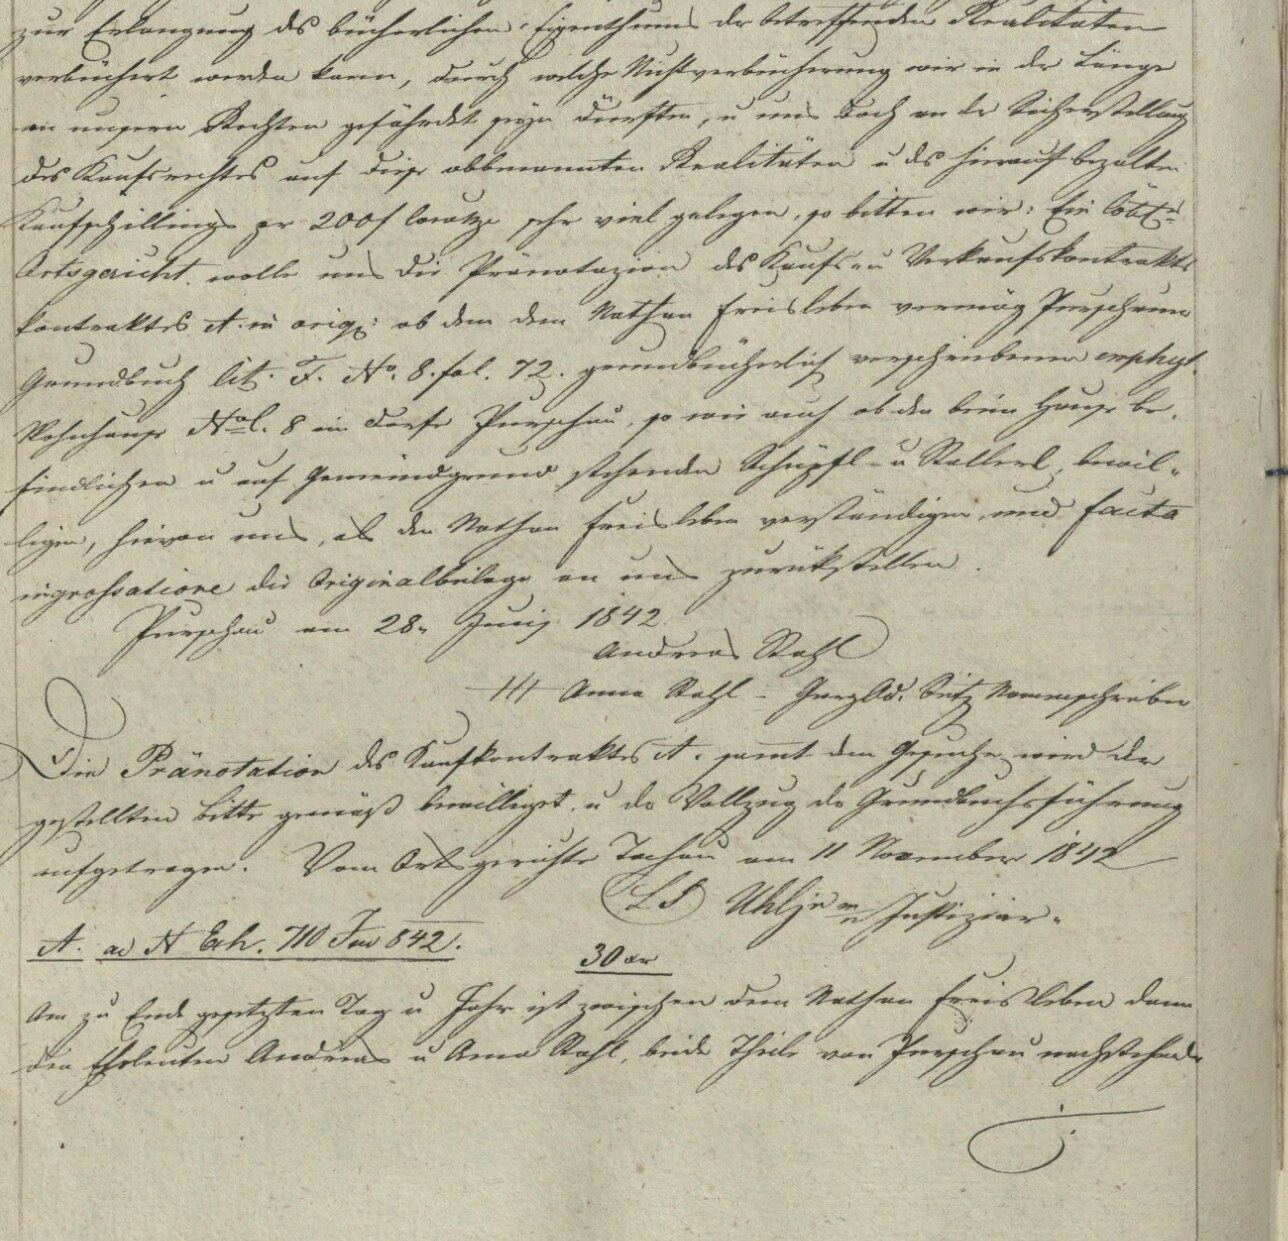 zur Erlangung des bücherlichen Eigenthums der betreffenden Realitäten
verbüchert werden kann, durch welche Nichtverbücherung wir in der Länge
an unsern Rechten gefährdet seyn dürften, u uns doch an der Sicherstellung
des Kaufsrechtes auf diese obbenannten Realitäten u des hierauf bezalten
Kaufschillings pr 200f sehr viel gelegen, so bitten wir: Ein löbl:
Ortsgericht wolle uns die Pränotazion des Kaufs- u Verkaufskontrakts
kontraktes A. in orig: ob dem dem Nathan Freisleben vermög Purschauer
Grundbuch lit. F. No. 8. fol. 72. grundbücherlich verschriebenen emphyt.
Wohnhause NoC. 8 im Dorfe Purschau, so wie auch ob den beim Hause be-
findlichen u auf Gemeindgrund stehenden Schüpfl- u Stallerl, bewil-
ligen, hievon uns, als den Nathan Freisleben verständigen, und facta
ingrossatione die Originalbeilage an uns zurückstellen.
Purschau am 28n Junij 1842.
Andreas Stahl
+++ Anna Stahl - Seitz Namenschreiber
Die Pränotation des Kaufkontraktes A. sammt dem Gesuche wird der
gestellten Bitte gemäß bewilliget, u der Vollzug der Grundbuchsführung
aufgetragen. Vom Ortsgerichte Tachau am 11 November 1842
(LS) Uhl Justiziär.
A. ad N Exh. 710 Jud 842.
30 xr
Am zu Ende gesetzten Tag u Jahr ist zwischen dem Nathan Freisleben dann
den Eheleuten Andreas u Anna Stahl, beide Theile von Purschau nachstehende